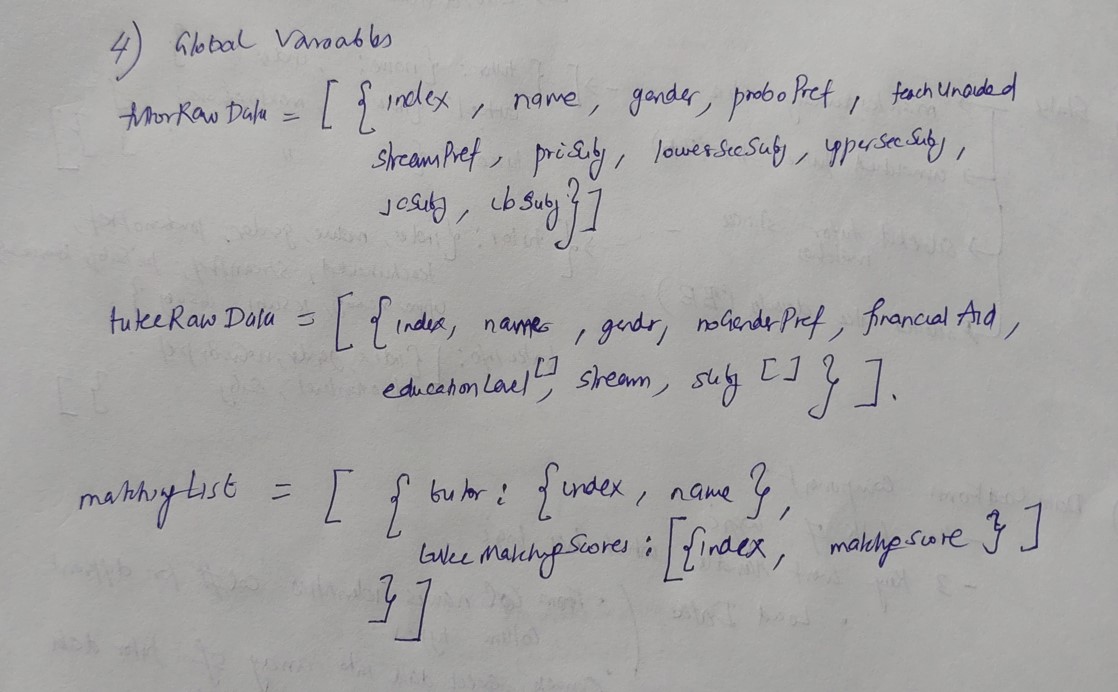 4) Global Variables
tutorRawData = [ { index , name , gender, proboPref , teachUnaided
streamPref , priSubj , lowerSecSubj , upperSecSubj ,
jcSubj , ibSubj } ]
tuteeRawData = [ { index, names , gender, noGenderPref , financial Aid ,
educationLevel [] , stream, subj [ ] } ] .
matchingList = [ { tutor : { index , name } ,
tuteeMatchingScores : [ { index , matchingScore } ]
} ]